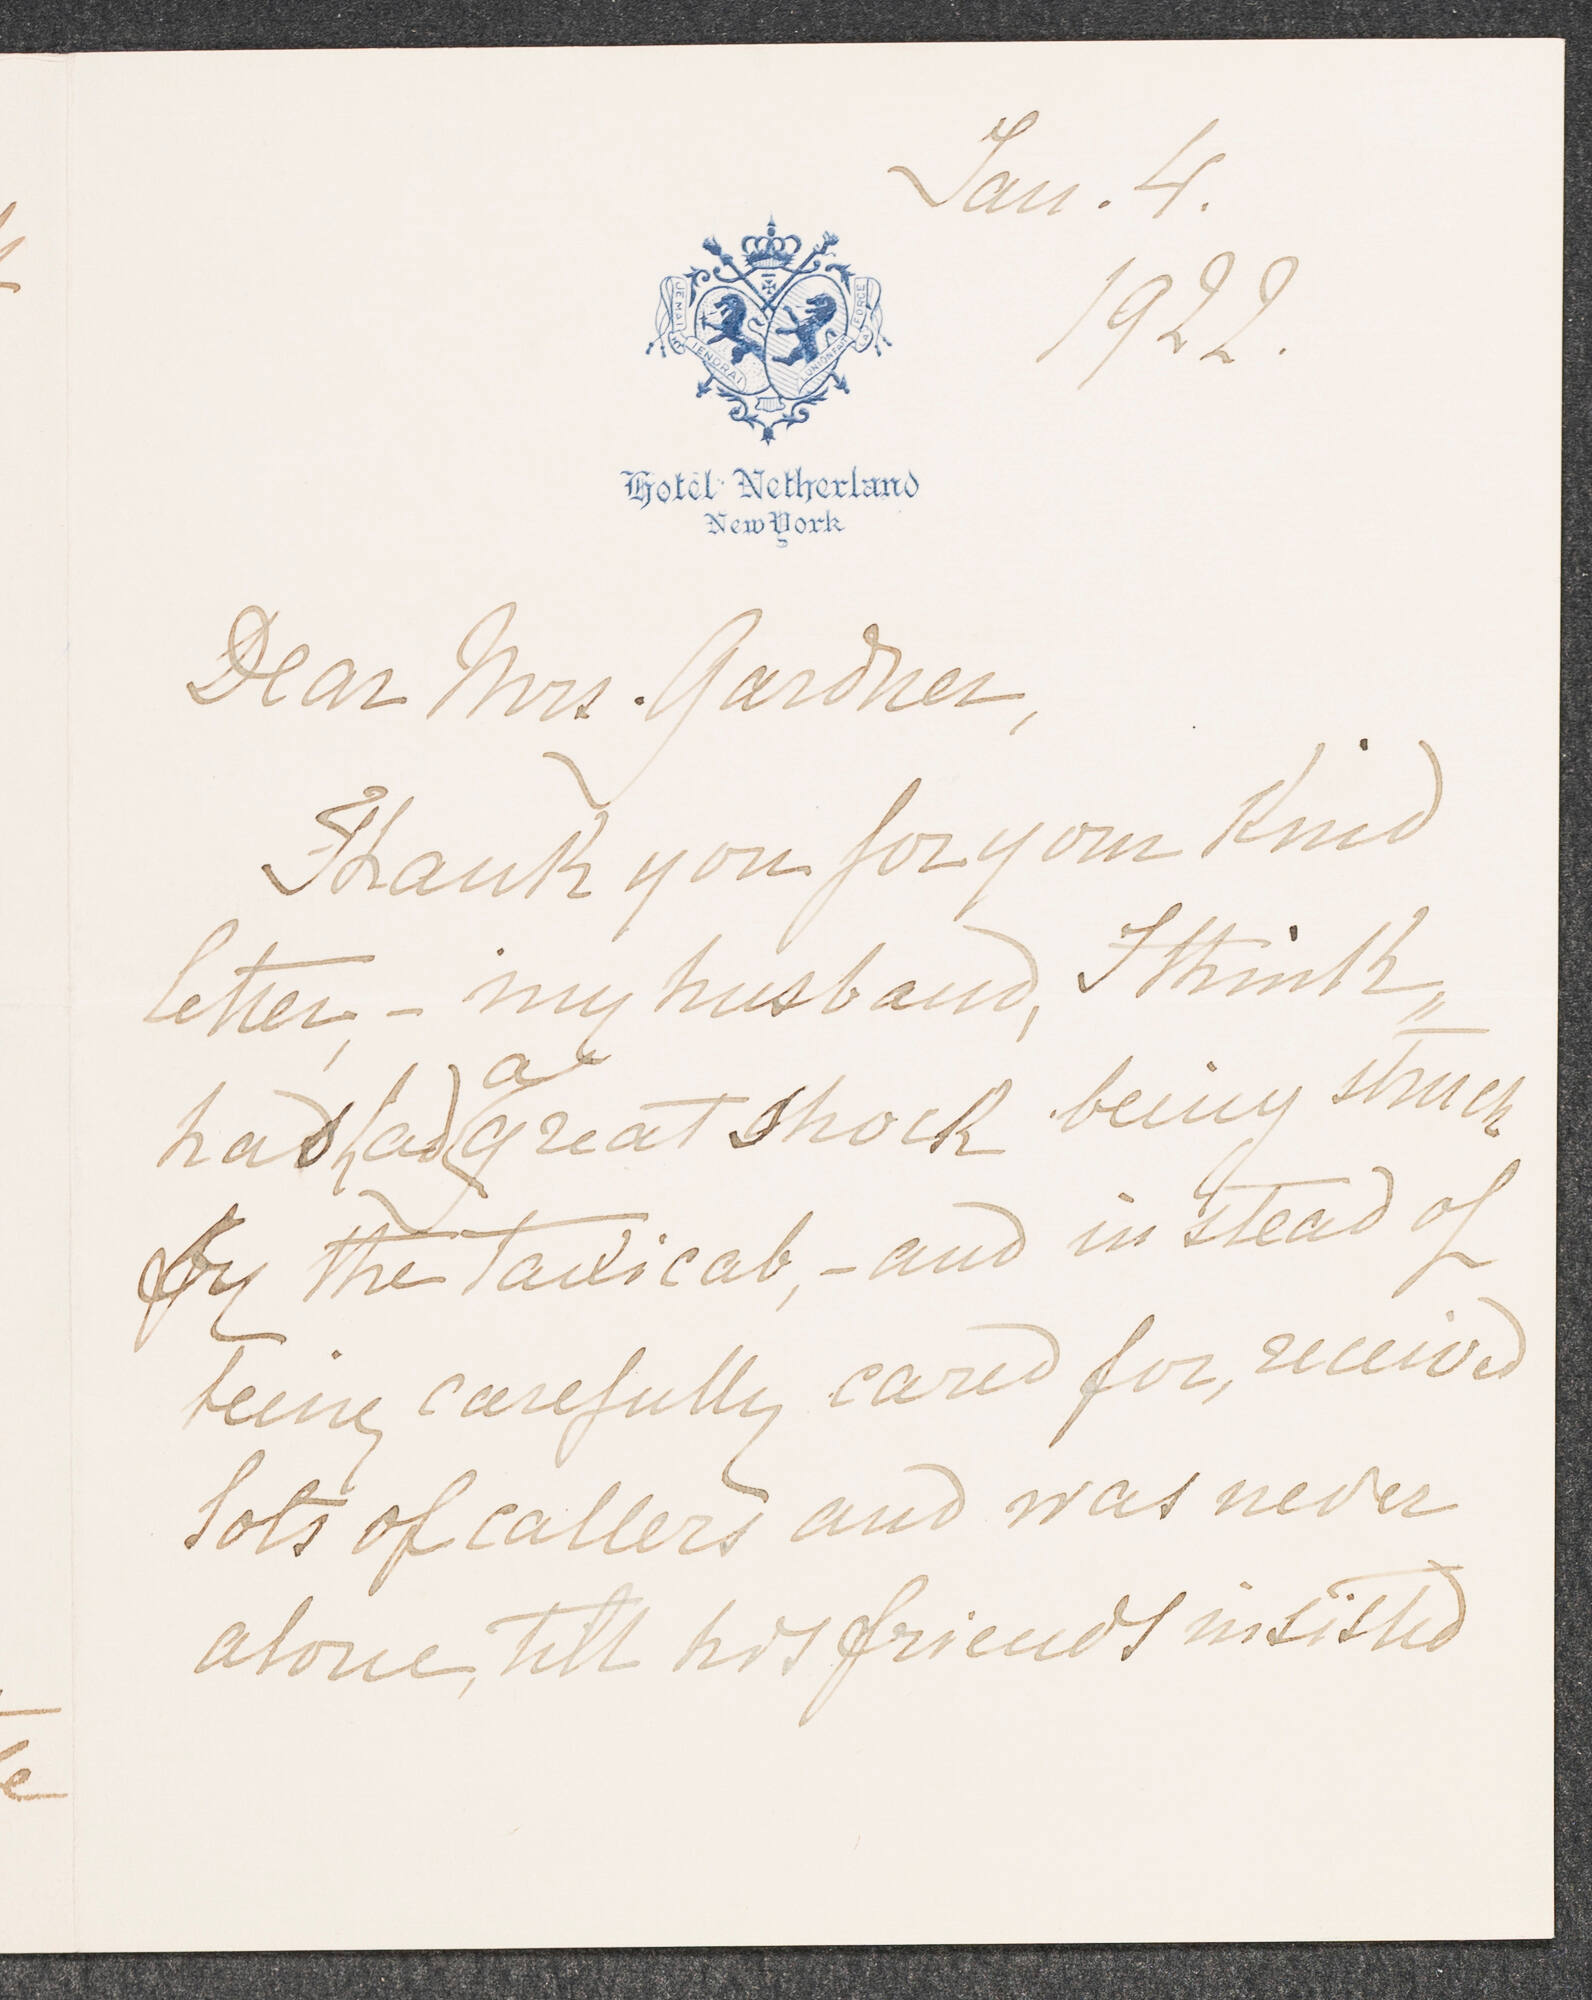 Jan. 4.
1922.
JE MAIN
TIENDRAI
L'UNION FAIT
LA FORCE
Hotel Netherland
New York
Dear Mrs. Gardner,
Thank you for your kind
letter, - my husband, I think,
has had a great shock being struck
by the taxicab, - and instead of
being carefully cared for, received
lots of callers and was never
alone, till his friends insisted